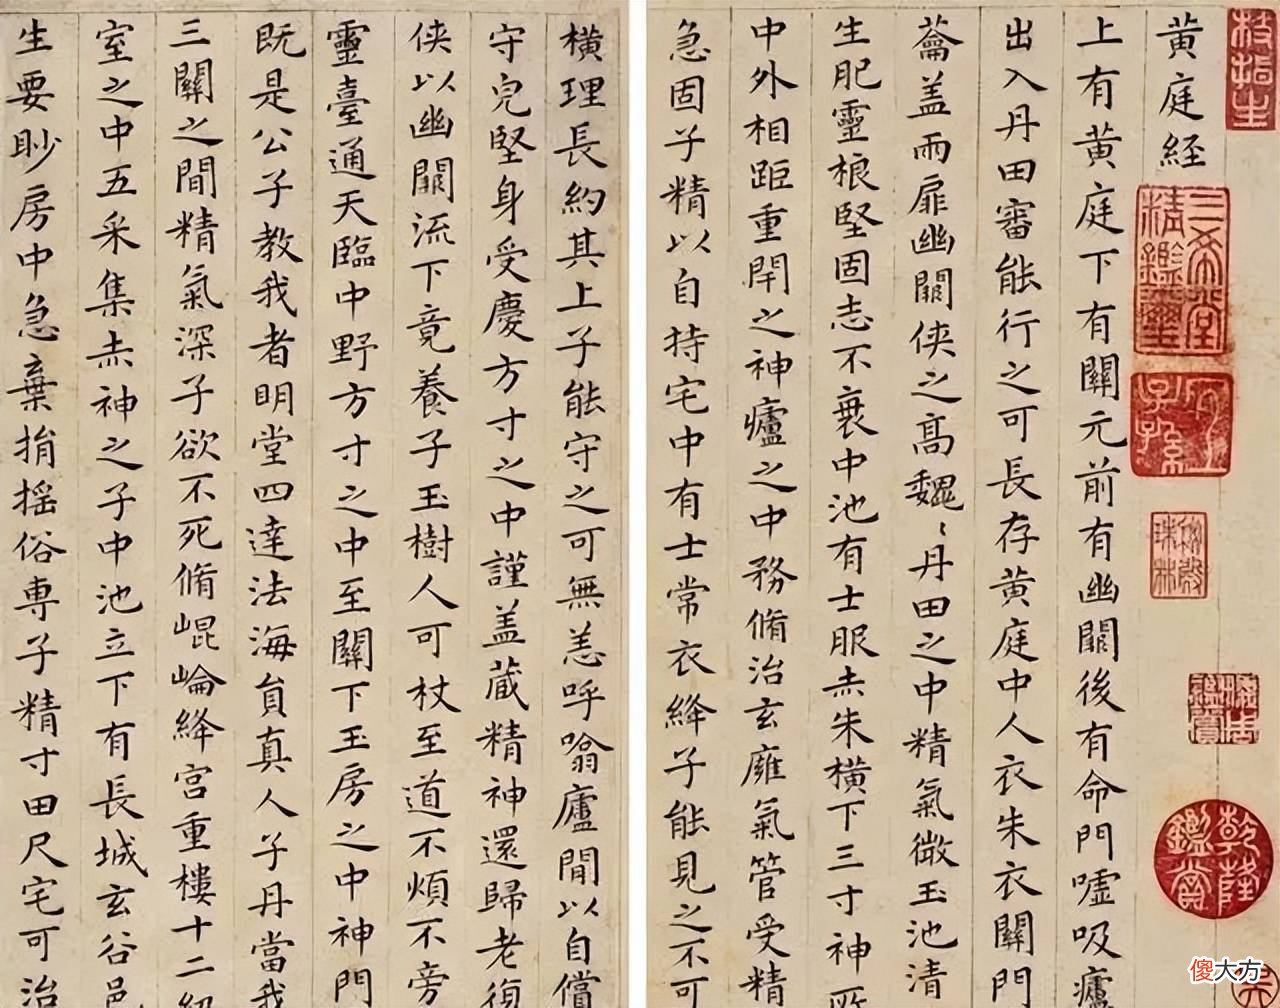 枝指生
三希堂精鑒璽
宜子孫
秘殿珠林
乾隆鑑賞
黄庭経
上有黄庭下有關元前有幽闕後有命門嘘吸廬
出入丹田審能行之可長存黄庭中人衣朱衣關門
蘥盖兩扉幽闕侠之高魏〻丹田之中精氣微玉池清
生肥靈根堅固志不衰中池有士服赤朱横下三寸神所
中外相距重閇之神廬之中務脩治玄廱氣管受精
急固子精以自持宅中有士常衣絳子能見之不可
横理長約其上子能守之可無恙呼噏廬間以自償
守皃堅身受慶方寸之中謹盖藏精神還歸老復
侠以幽闕流下竟養子玉樹人可杖至道不煩不旁
靈臺通天臨中野方寸之中至關下玉房之中神門
既是公子教我者明堂四達法海員真人子丹當我
三關之間精氣深子欲不死脩崐崘絳宫重樓十二級
室之中五采集赤神之子中池立下有長城玄谷邑
生要眇房中急棄捐摇俗専子精寸田尺宅可治
傻大方